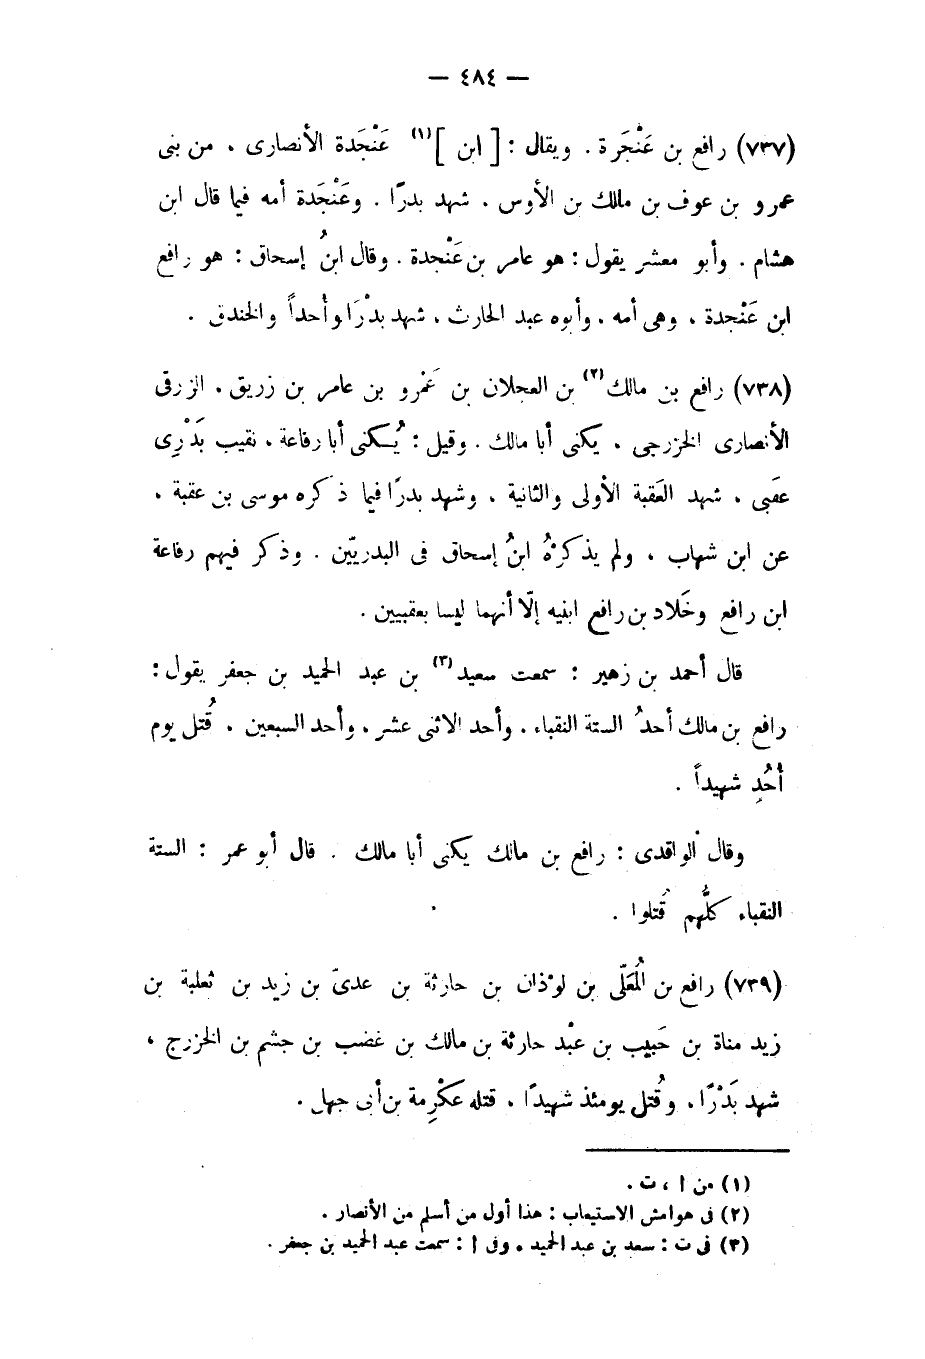 — ٤٨٤ —
(٧٣٧) رافع بن عَنْجَرة . ويقال : [ ابن ]⁽¹⁾ عَنْجَدة الأنصارى ، من بنى
عمرو بن عوف بن مالك بن الأوس ، شهد بدرًا . وعَنْجَدة أمه فيما قال ابن
هشام . وأبو معشر يقول : هو عامر بن عَنْجدة . وقال ابنُ إسحاق : هو رافع
ابن عَنْجدة ، وهى أمه ، وأبوه عبد الحارث ، شهد بدْرًا وأُحداً والخندق .
(٧٣٨) رافع بن مالك⁽٢⁾ بن العجلان بن عَمْرو بن عامر بن زريق ، الزرقى
الأنصارى الخزرجى ، يكنى أبا مالك . وقيل : يُكنى أبا رفاعة ، نقيب بَدْرِى
عقبى ، شهد العَقبة الأولى والثانية ، وشهد بدرًا فيما ذكره موسى بن عقبة ،
عن ابن شهاب ، ولم يذكرْهُ ابنُ إسحاق فى البدريّين . وذكر فيهم رفاعة
ابن رافع وخَلاد بن رافع ابنيه إلّا أنهما ليسا بعقبيين .
قال أحمد بن زهير : سمعت سعيد⁽٣⁾ بن عبد الحميد بن جعفر يقول :
رافع بن مالك أحدُ الستة النقباء ، وأحد الاثنى عشر ، وأحد السبعين ، قُتل يوم
أُحُدٍ شهيداً .
وقال الواقدى : رافع بن مالك يكنى أبا مالك . قال أبو عمر : الستة
النقباء كلُّهم قُتلوا .
(٧٣٩) رافع بن المُعَلّى بن لوْذان بن حارثة بن عدىّ بن زيد بن ثعلبة بن
زيد مناة بن حَبيب بن عبْد حارثة بن مالك بن غضب بن جشم بن الخزرج ،
شهد بَدْرًا ، وقُتل يومئذ شهيدًا ، قتله عكْرِمة بن أبى جهل .
(١) من ا ، ت .
(٢) فى هوامش الاستيعاب : هذا أول من أسلم من الأنصار .
(٣) فى ت : سعد بن عبد الحميد ، وفى أ : سمعت عبد الحميد بن جعفر .